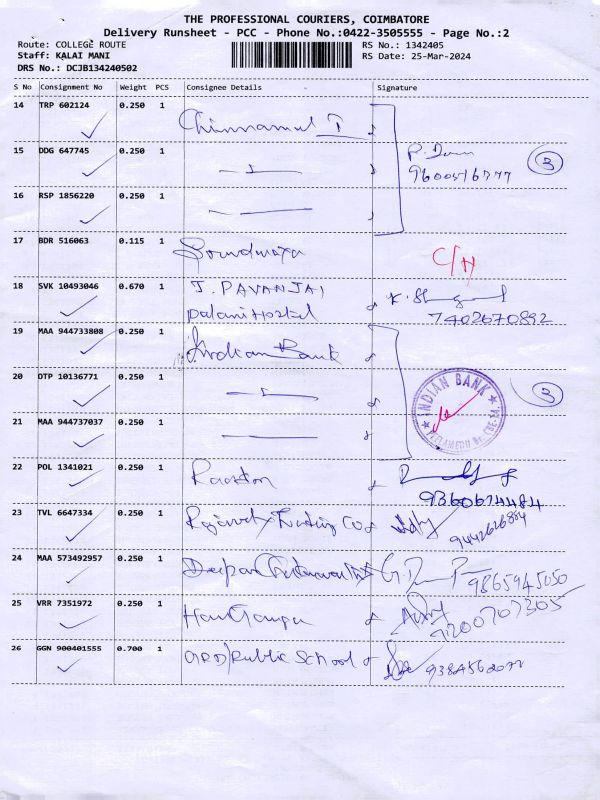 THE PROFESSIONAL COURIERS, COIMBATORE
Delivery Runsheet - PCC - Phone No.:0422-3505555 - Page No.:2
Route: COLLEGE ROUTE
RS No.: 1342405
Staff: KALAI MANI
RS Date: 25-Mar-2024
DRS No.: DCJB134240502
S No Consignment No Weight PCS Consignee Details Signature
14 TRP 602124 0.250 1 Chinnamal T
15 DDG 647745 0.250 1 3
9600516777
16 RSP 1856220 0.250 1
17 BDR 516063 0.115 1 C/H
18 SVK 10493046 0.670 1 J. PAVANJAI
Palani Hostel 7402670892
19 MAA 944733808 0.250 1 Indian Bank
20 DTP 10136771 0.250 1 3
INDIAN BANK
21 MAA 944737037 0.250 1
22 POL 1341021 0.250 1
9360674484
23 TVL 6647334 0.250 1 Trading Co
9442626884
24 MAA 573492957 0.250 1 9865945050
25 VRR 7351972 0.250 1 9200707305
26 GGN 900401555 0.700 1 GRD Public School